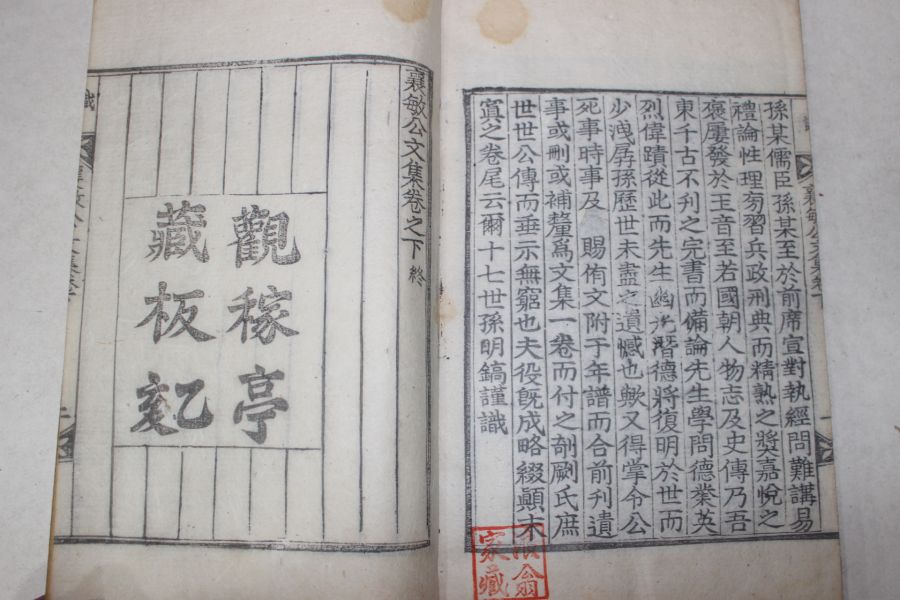 孫某儒臣 孫某至於前席宣對執經問難講易
禮論性理旁習兵政刑典而精熟之奬嘉悅之
褒屢發於王音至若國朝人物志及史傳乃吾
東千古不刊之完書而備論先生學問德業英
烈偉蹟從此而先生幽光潛德將復明於世而
少洩孱孫歷世未盡之遺憾也歟又得掌令公
死事時事及 賜侑文附于年譜而合前刊遺
事或刪或補釐爲文集一卷而付之剞劂氏庶
世世公傳而垂示無窮也夫役旣成略綴顚末
寘之卷尾云爾十七世孫明鎬謹識
襄敏公文集卷之下 終
觀稼亭
藏板
家藏